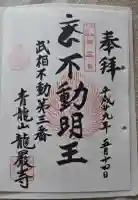 奉拝
平成廿九年五月十四日
不動明王
武相不動第三番
青龍山龍嚴寺